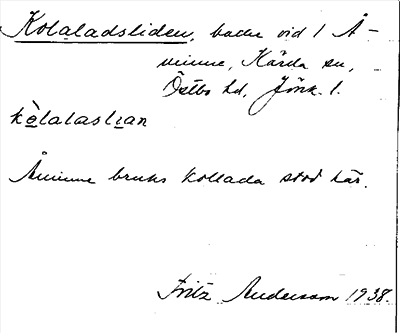 Kolaladsliden, backe vid 1 Å-
minne, Kärda sn,
Östbo hd, Jönk. l.
kòlalaslian
Åminne bruks kollada stod här.
Fritz Andersson 1938.